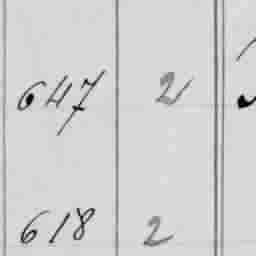 647 2
618 2